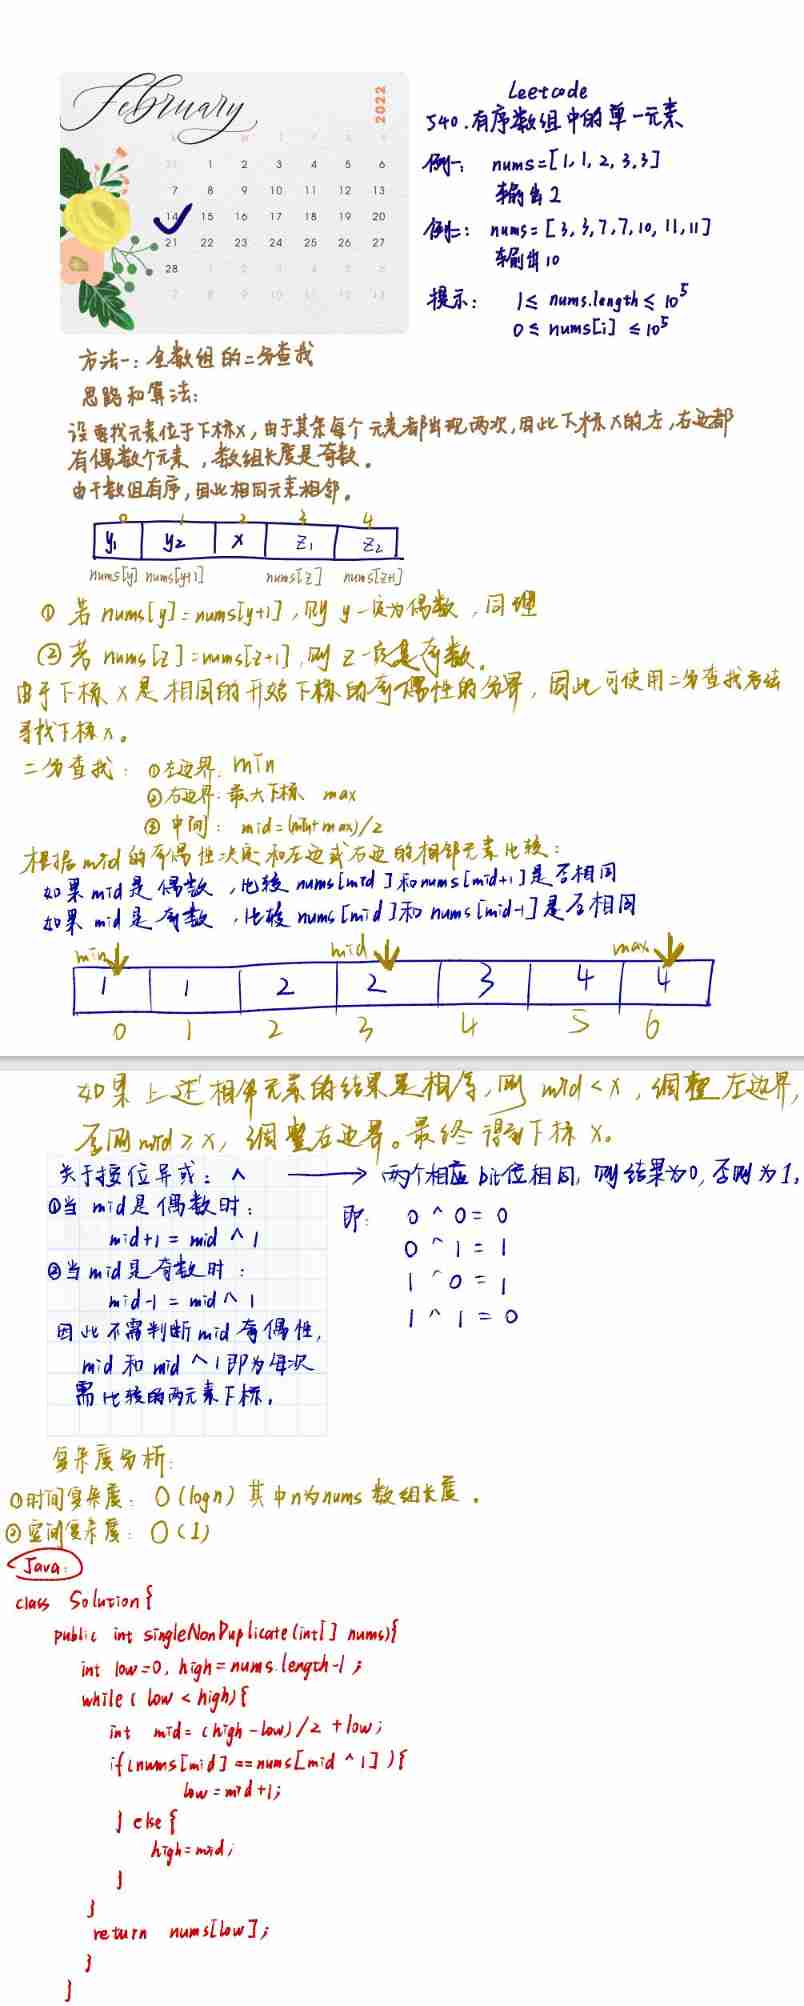 February
2022
31 1 2 3 4 5 6
7 8 9 10 11 12 13
14 15 16 17 18 19 20
21 22 23 24 25 26 27
28 1 2 3 4 5 6
7 8 9 10 11 12 13
Leetcode
540.有序数组中的单一元素
例一: nums=[1,1,2,3,3]
输出2
例二: nums=[3,3,7,7,10,11,11]
输出10
提示: 1≤ nums.length ≤ 10⁵
0≤ nums[i] ≤10⁵
方法一:全数组的二分查找
思路和算法:
设要找元素位于下标x,由于其余每个元素都出现两次,因此下标x的左,右边都
有偶数个元素,数组长度是奇数。
由于数组有序,因此相同元素相邻。
0 1 2 3 4
y₁ y₂ x z₁ z₂
nums[y] nums[y+1] nums[z] nums[z+1]
① 若 nums[y]=nums[y+1],则 y一定为偶数,同理
② 若 nums[z]=nums[z+1],则 z一定是奇数。
由于下标 x 是相同的开始下标的奇偶性的分界,因此可使用二分查找方法
寻找下标x。
二分查找: ①左边界: min
②右边界:最大下标 max
③ 中间: mid=(min+max)/2
根据mid的奇偶性决定和左边或右边的相邻元素比较:
如果 mid 是偶数,比较 nums[mid]和nums[mid+1]是否相同
如果 mid 是奇数,比较 nums[mid]和 nums[mid-1]是否相同
min mid max
1 1 2 2 3 4 4
0 1 2 3 4 5 6
如果上述相邻元素的结果是相等,则 mid<x,调整左边界,
否则mid≥x,调整右边界。最终得到下标 x。
关于按位异或: ^ → 两个相应bit位相同,则结果为0,否则为1,
①当 mid是偶数时:
mid+1 = mid ^ 1
②当mid是奇数时:
mid-1 = mid ^ 1
因此不需判断mid奇偶性,
mid 和 mid ^ 1即为每次
需比较的两元素下标。
即: 0 ^ 0 = 0
0 ^ 1 = 1
1 ^ 0 = 1
1 ^ 1 = 0
复杂度分析:
①时间复杂度: O(logn) 其中n为nums 数组长度。
②空间复杂度: O(1)
Java:
class Solution{
public int singleNonDuplicate(int[] nums){
int low=0, high=nums.length-1;
while( low < high){
int mid= (high-low)/2 +low;
if(nums[mid] ==nums[mid ^ 1] ){
low=mid+1;
} else{
high=mid;
}
}
return nums[low];
}
}